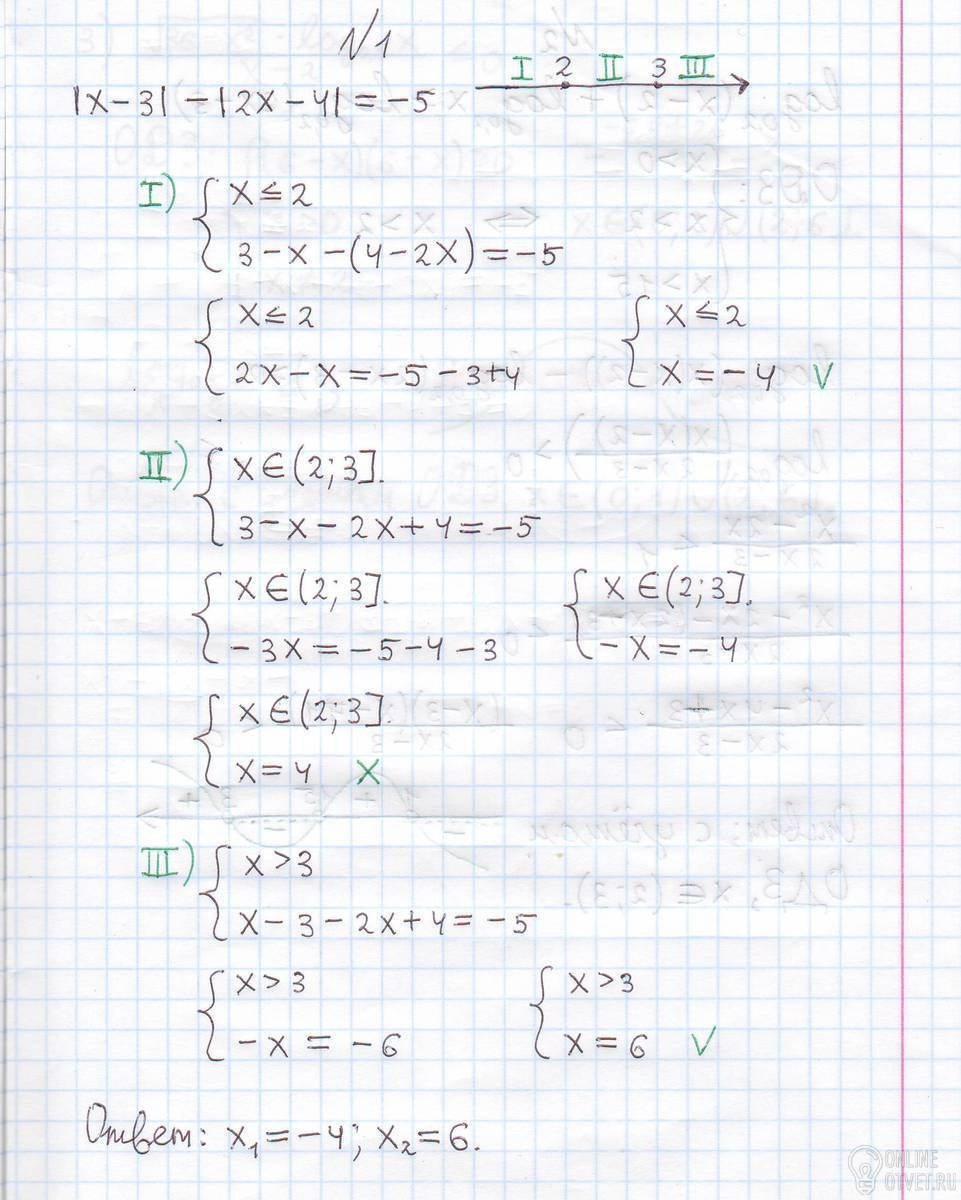 №1
|x-3|-|2x-4|=-5
I 2 II 3 III
I) { x≤2
3-x-(4-2x)=-5
{ x≤2
2x-x=-5-3+4
{ x≤2
x=-4 V
II) { x∈(2;3].
3-x-2x+4=-5
{ x∈(2;3].
-3x=-5-4-3
{ x∈(2;3].
-x=-4
{ x∈(2;3].
x=4 X
III) { x>3
x-3-2x+4=-5
{ x>3
-x=-6
{ x>3
x=6 V
Ответ: x₁=-4; x₂=6.
ONLINE
OTVET.RU